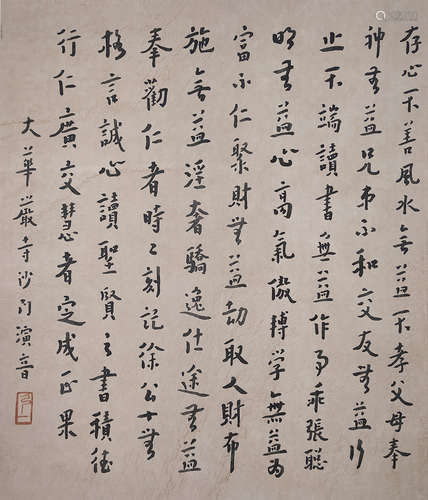 存心不善風水無益不孝父母奉
神無益兄弟不和交友無益行
止不端讀書無益作事乖張聰
明無益心高氣傲博學無益為
富不仁聚財無益劫取人財布
施無益淫奢驕逸仕途無益
奉勸仁者時時刻記徐公十無
格言誠心讀聖賢之書積德
行仁廣交慧者定成正果
大華嚴寺沙門演音